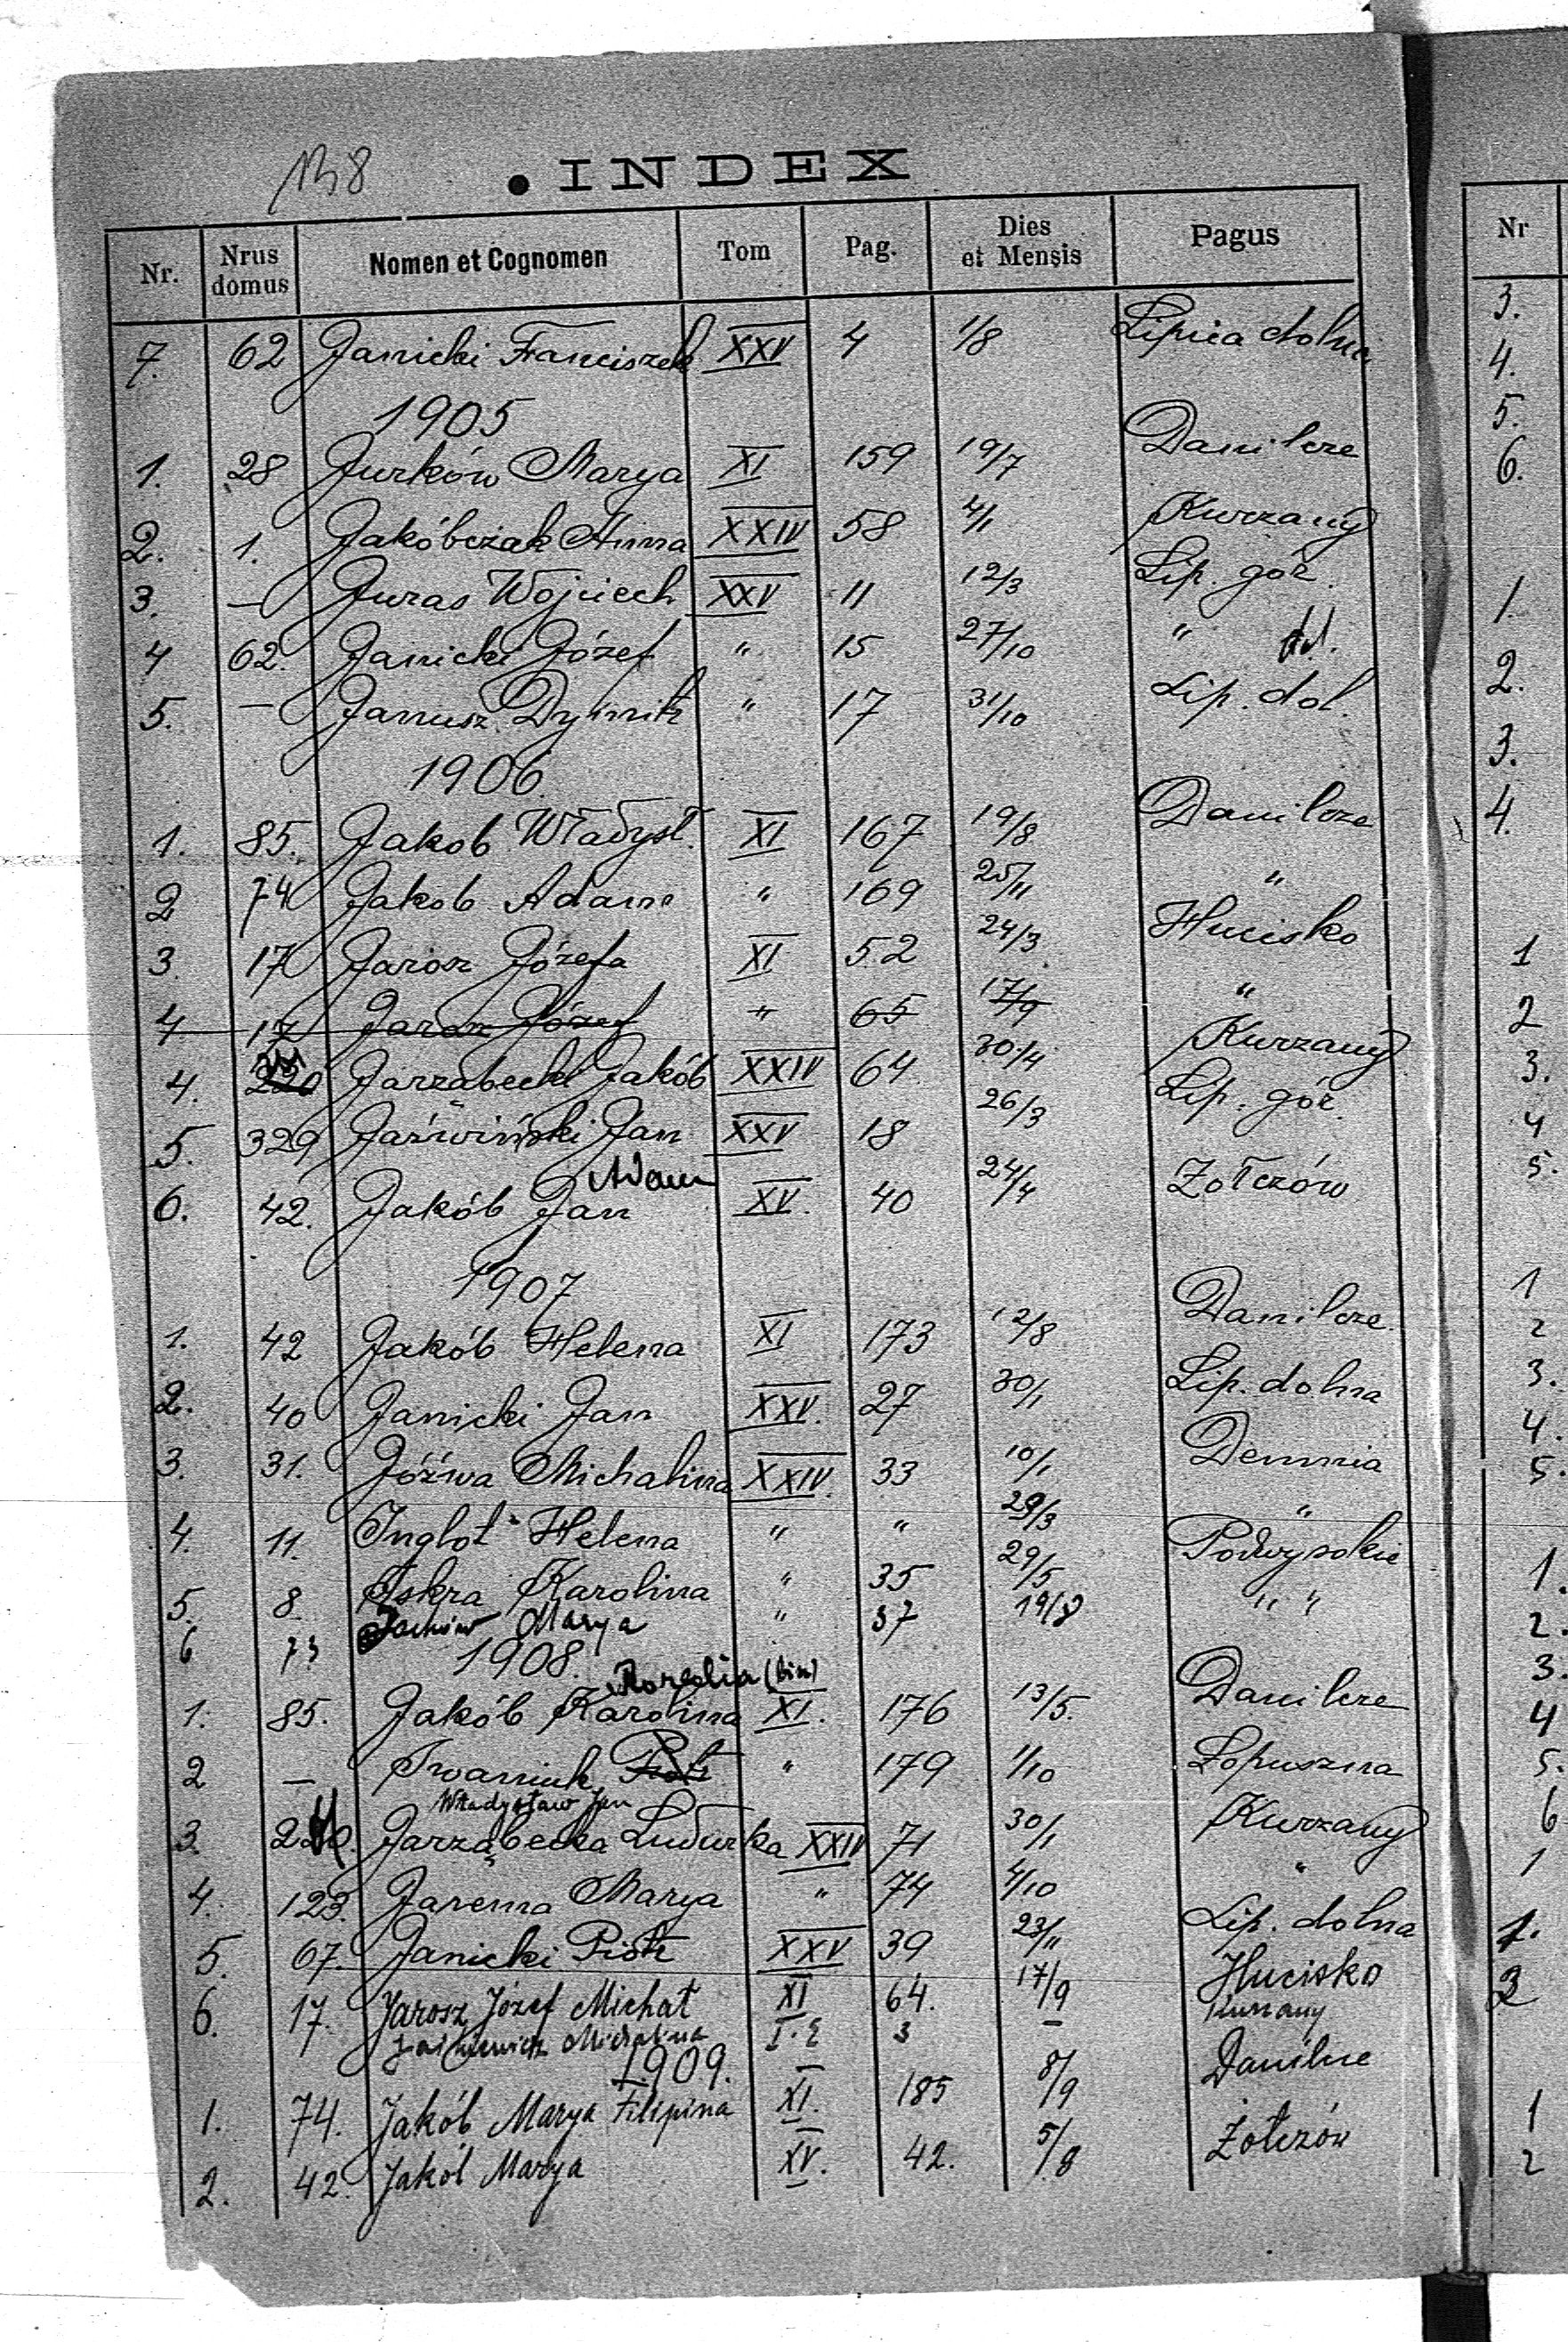 138
• INDEX
Nr. Nrus domus Nomen et Cognomen Tom Pag. Dies et Mensis Pagus
7. 62 Janicki Franciszek XXV 4 1/8 Lipica dolna
1905
1. 28 Jurków Marya XI 159 19/7 Danilcze
2. 1. Jakóbczak Anna XXIV 58 4/1 Kurzany
3. — Juras Wojciech XXV 11 12/3 Lip. gór.
4 62. Janicki Józef " 15 27/10 " dol.
5. — Janusz Dymitr " 17 31/10 Lip. dol.
1906
1. 85. Jakob Władysł. XI 167 19/8 Danilcze
2 74 Jakob Adam " 169 25/11 "
3. 17 Jarosz Józefa XI 52 24/3 Hucisko
4 17 Jarosz Józef " 65 17/9 "
4. Jarząbecki Jakób XXIV 64 30/4 Kurzany
5. 329 Jaźwiński Jan XXV 18 26/3 Lip. gór.
Adam
6. 42. Jakób Jan XV. 40 24/4 Żołczów
1907
1. 42 Jakób Helena XI 173 12/8 Danilcze
2. 40 Janicki Jan XXV. 27 30/1 Lip. dolna
3. 31. Jóźwa Michalina XXIV. 33 10/1 Demnia
4. 11. Inglot Helena " " 29/3 "
5. 8. Iskra Karolina " 35 29/5 Podwysokie
6 73 Marya " 37 19/8 " "
1908.
Rozalia (bin)
1. 85. Jakób Karolina XI. 176 13/5. Danilcze
2 — Iwaniuk Piotr " 179 1/10 Łopuszna
Władysław Jan
3. Jarząbecka Ludwika XXIV 71 30/1 Kurzany
4. 123. Jarema Marya " 74 4/10 "
5. 67. Janicki Piotr XXV 39 23/11 Lip. dolna
6. 17. Jarosz Józef Michał XI 64. 17/9 Hucisko
Michalina 3 — Kurzany
1909.
1. 74. Jakób Marya Filipina XI. 185 8/9 Danilcze
2. 42. Jakób Marya XV. 42. 5/8 Żołczów
Nr
3.
4.
5.
6.
1.
2.
3.
4.
1
2
3.
4
5.
1
2
3.
4.
5.
1.
2.
3.
4
5.
6
1
1.
2
1
2